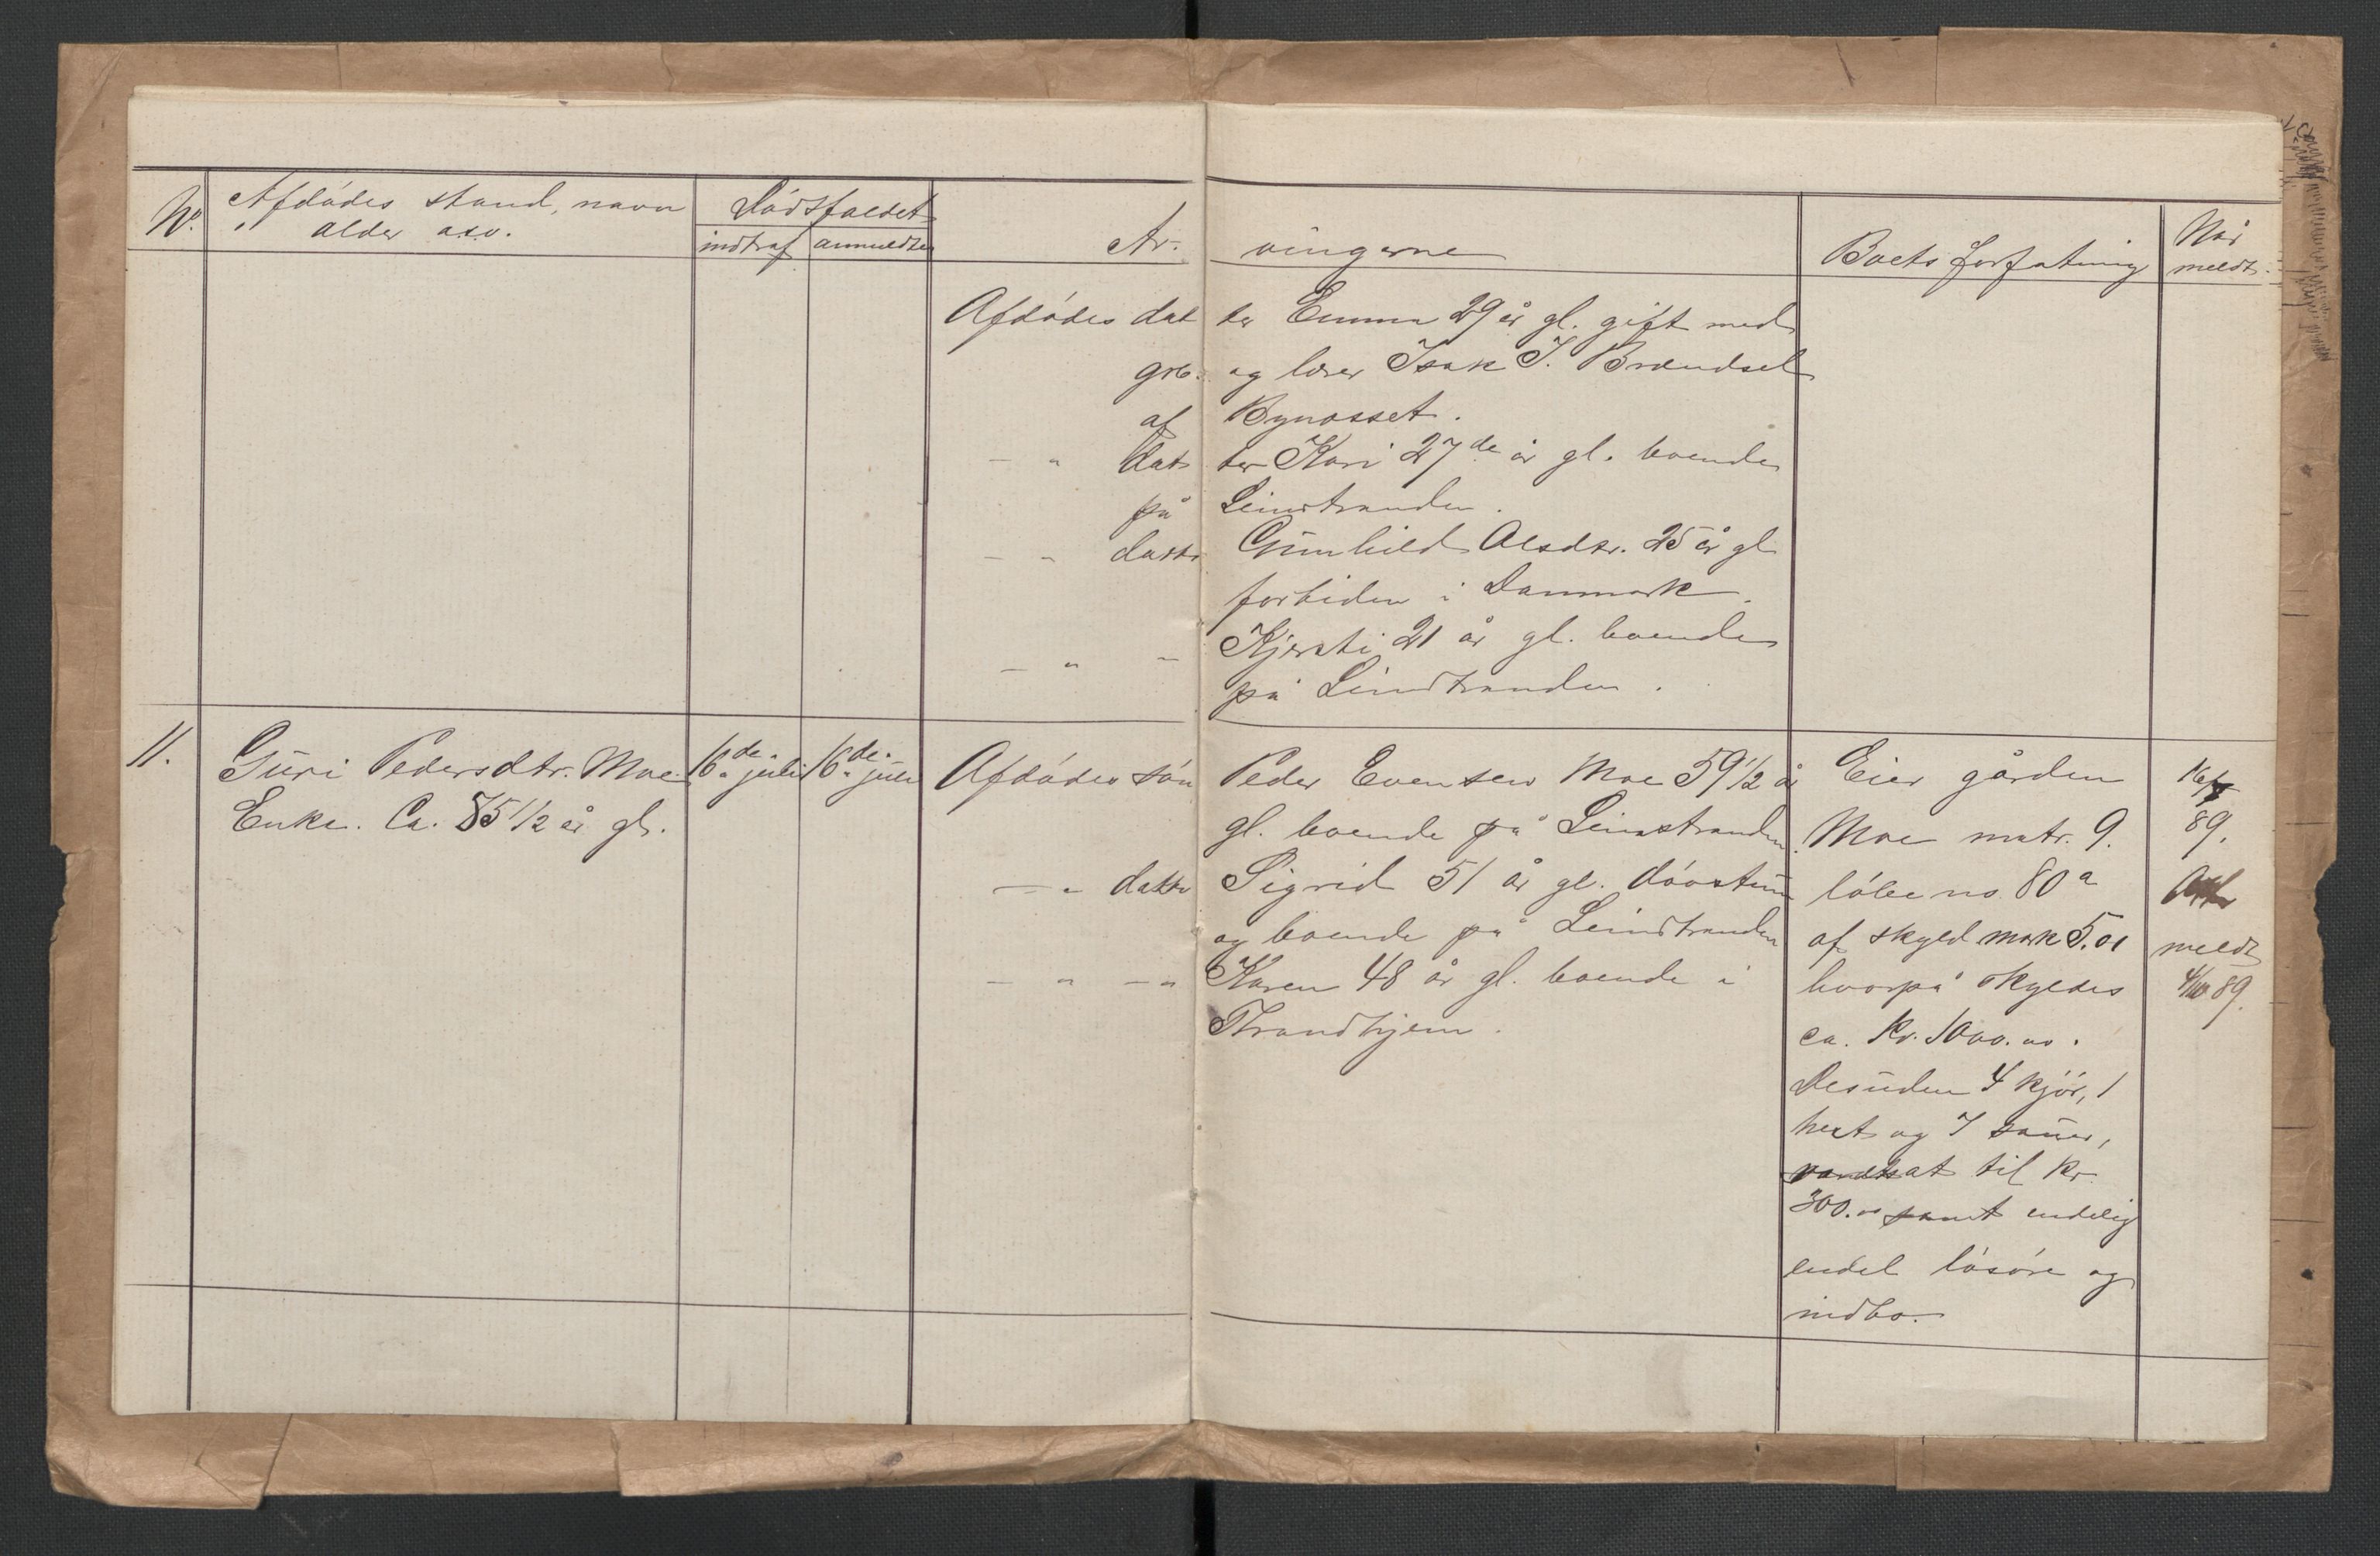 No. Afdødes stand, navn alder o.s.v.
Dødsfaldet
indtraf anmeldtes
Ar- vingerne
Boets forfatning
Når meldt.
Afdødes dat ter Emma 29 år gl. gift med
grb. og lærer Isak J. Brændsel
af Bynæsset.
— " dat ter Kari 27de år gl. boende
på Leinstranden.
— " datter Gunhild Olsdtr. 25 år gl
fortiden i Danmark.
— " — Kjersti 21 år gl. boende
på Leinstranden.
11.
Guri Pedersdtr. Moe
Enke. Ca. 85 1/2 år gl.
16de juli
16de juli
Afdødes søn Peder Evensen Moe 59 1/2 år
gl. boende på Leinstranden.
— " datter Sigrid 51 år gl. døvstum
og boende på Leinstranden
— " — " Karen 48 år gl. boende i
Throndhjem.
Eier gården
Moe matr. 9.
løbe no 80a
af skyld mark 5.01
hvorpå skyldes
ca. Kr. 1000.00.
Desuden 4 kjør, 1
hest og 7 sauer,
værdsat til kr.
300.00 samt endelig
endel løsøre og
indbo.
16/7
89.
meldt
4/10 89.